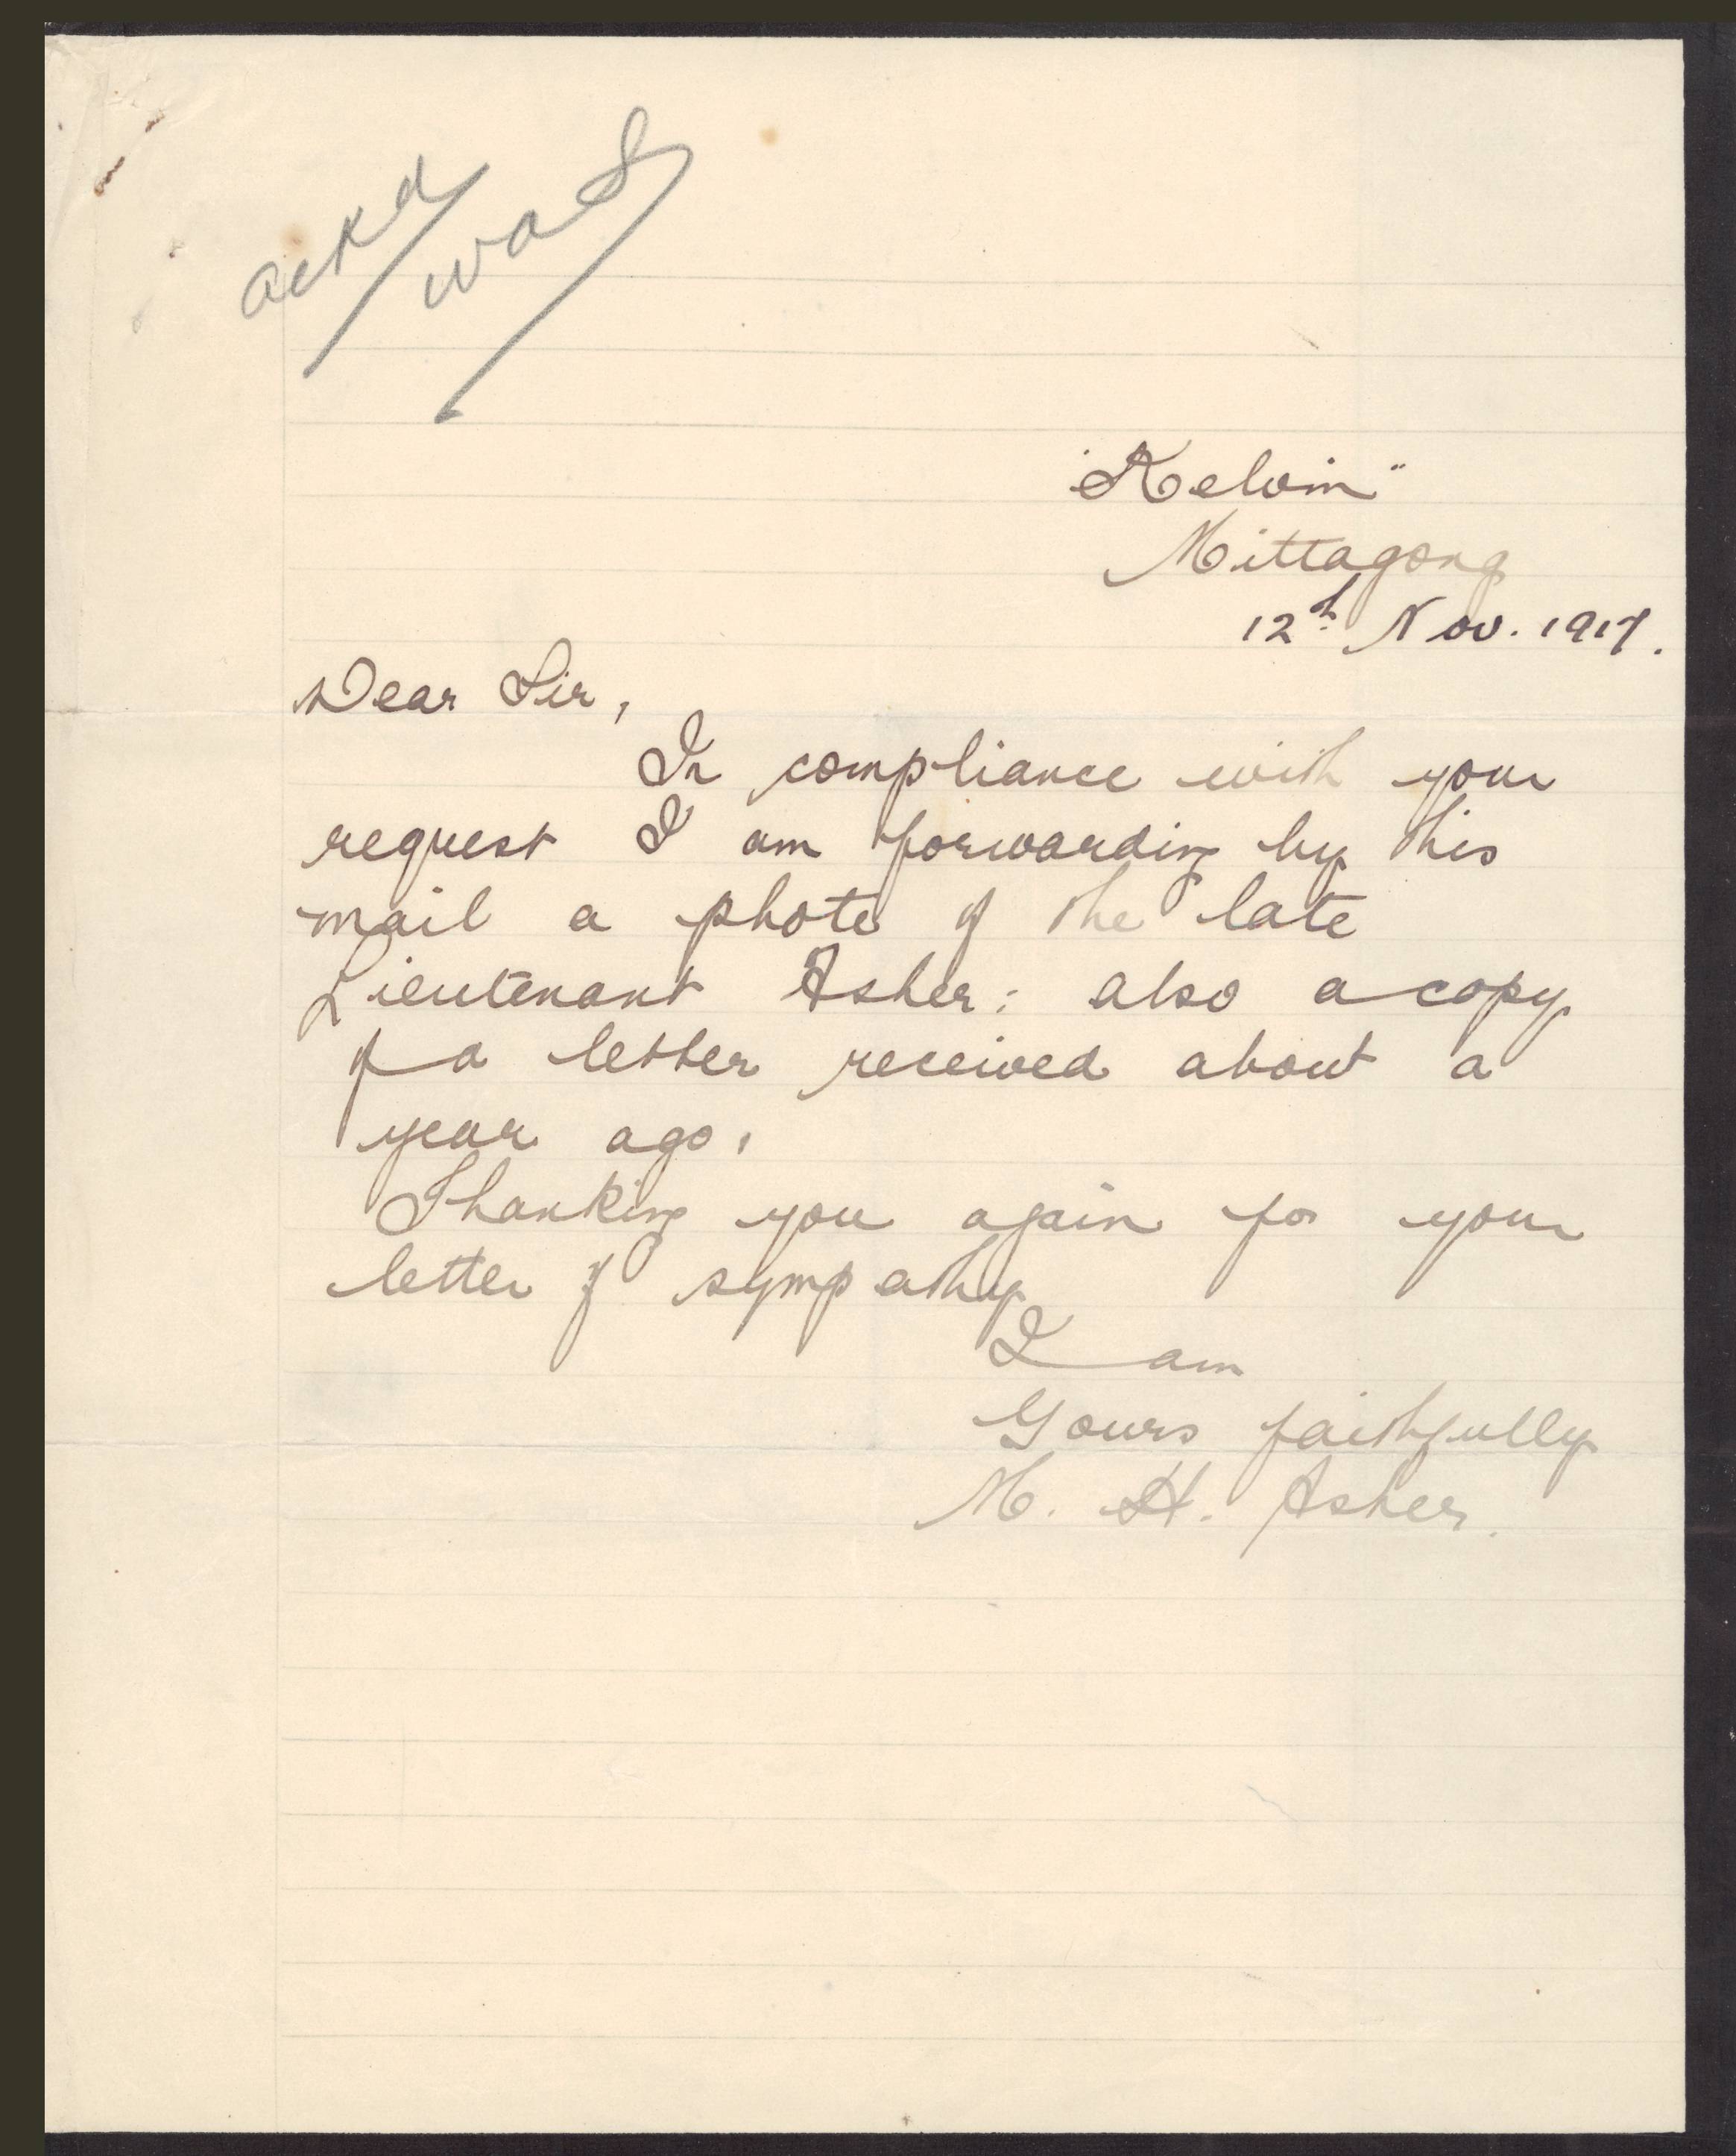 ackd
"Kelvin"
Mittagong
12th Nov. 1917.
Dear Sir,
In compliance with your
request I am forwarding by this
mail a photo of the late
Lieutenant Asher: also a copy
of a letter received about a
year ago.
Thanking you again for your
letter of sympathy
I am
Yours faithfully
M. H. Asher.